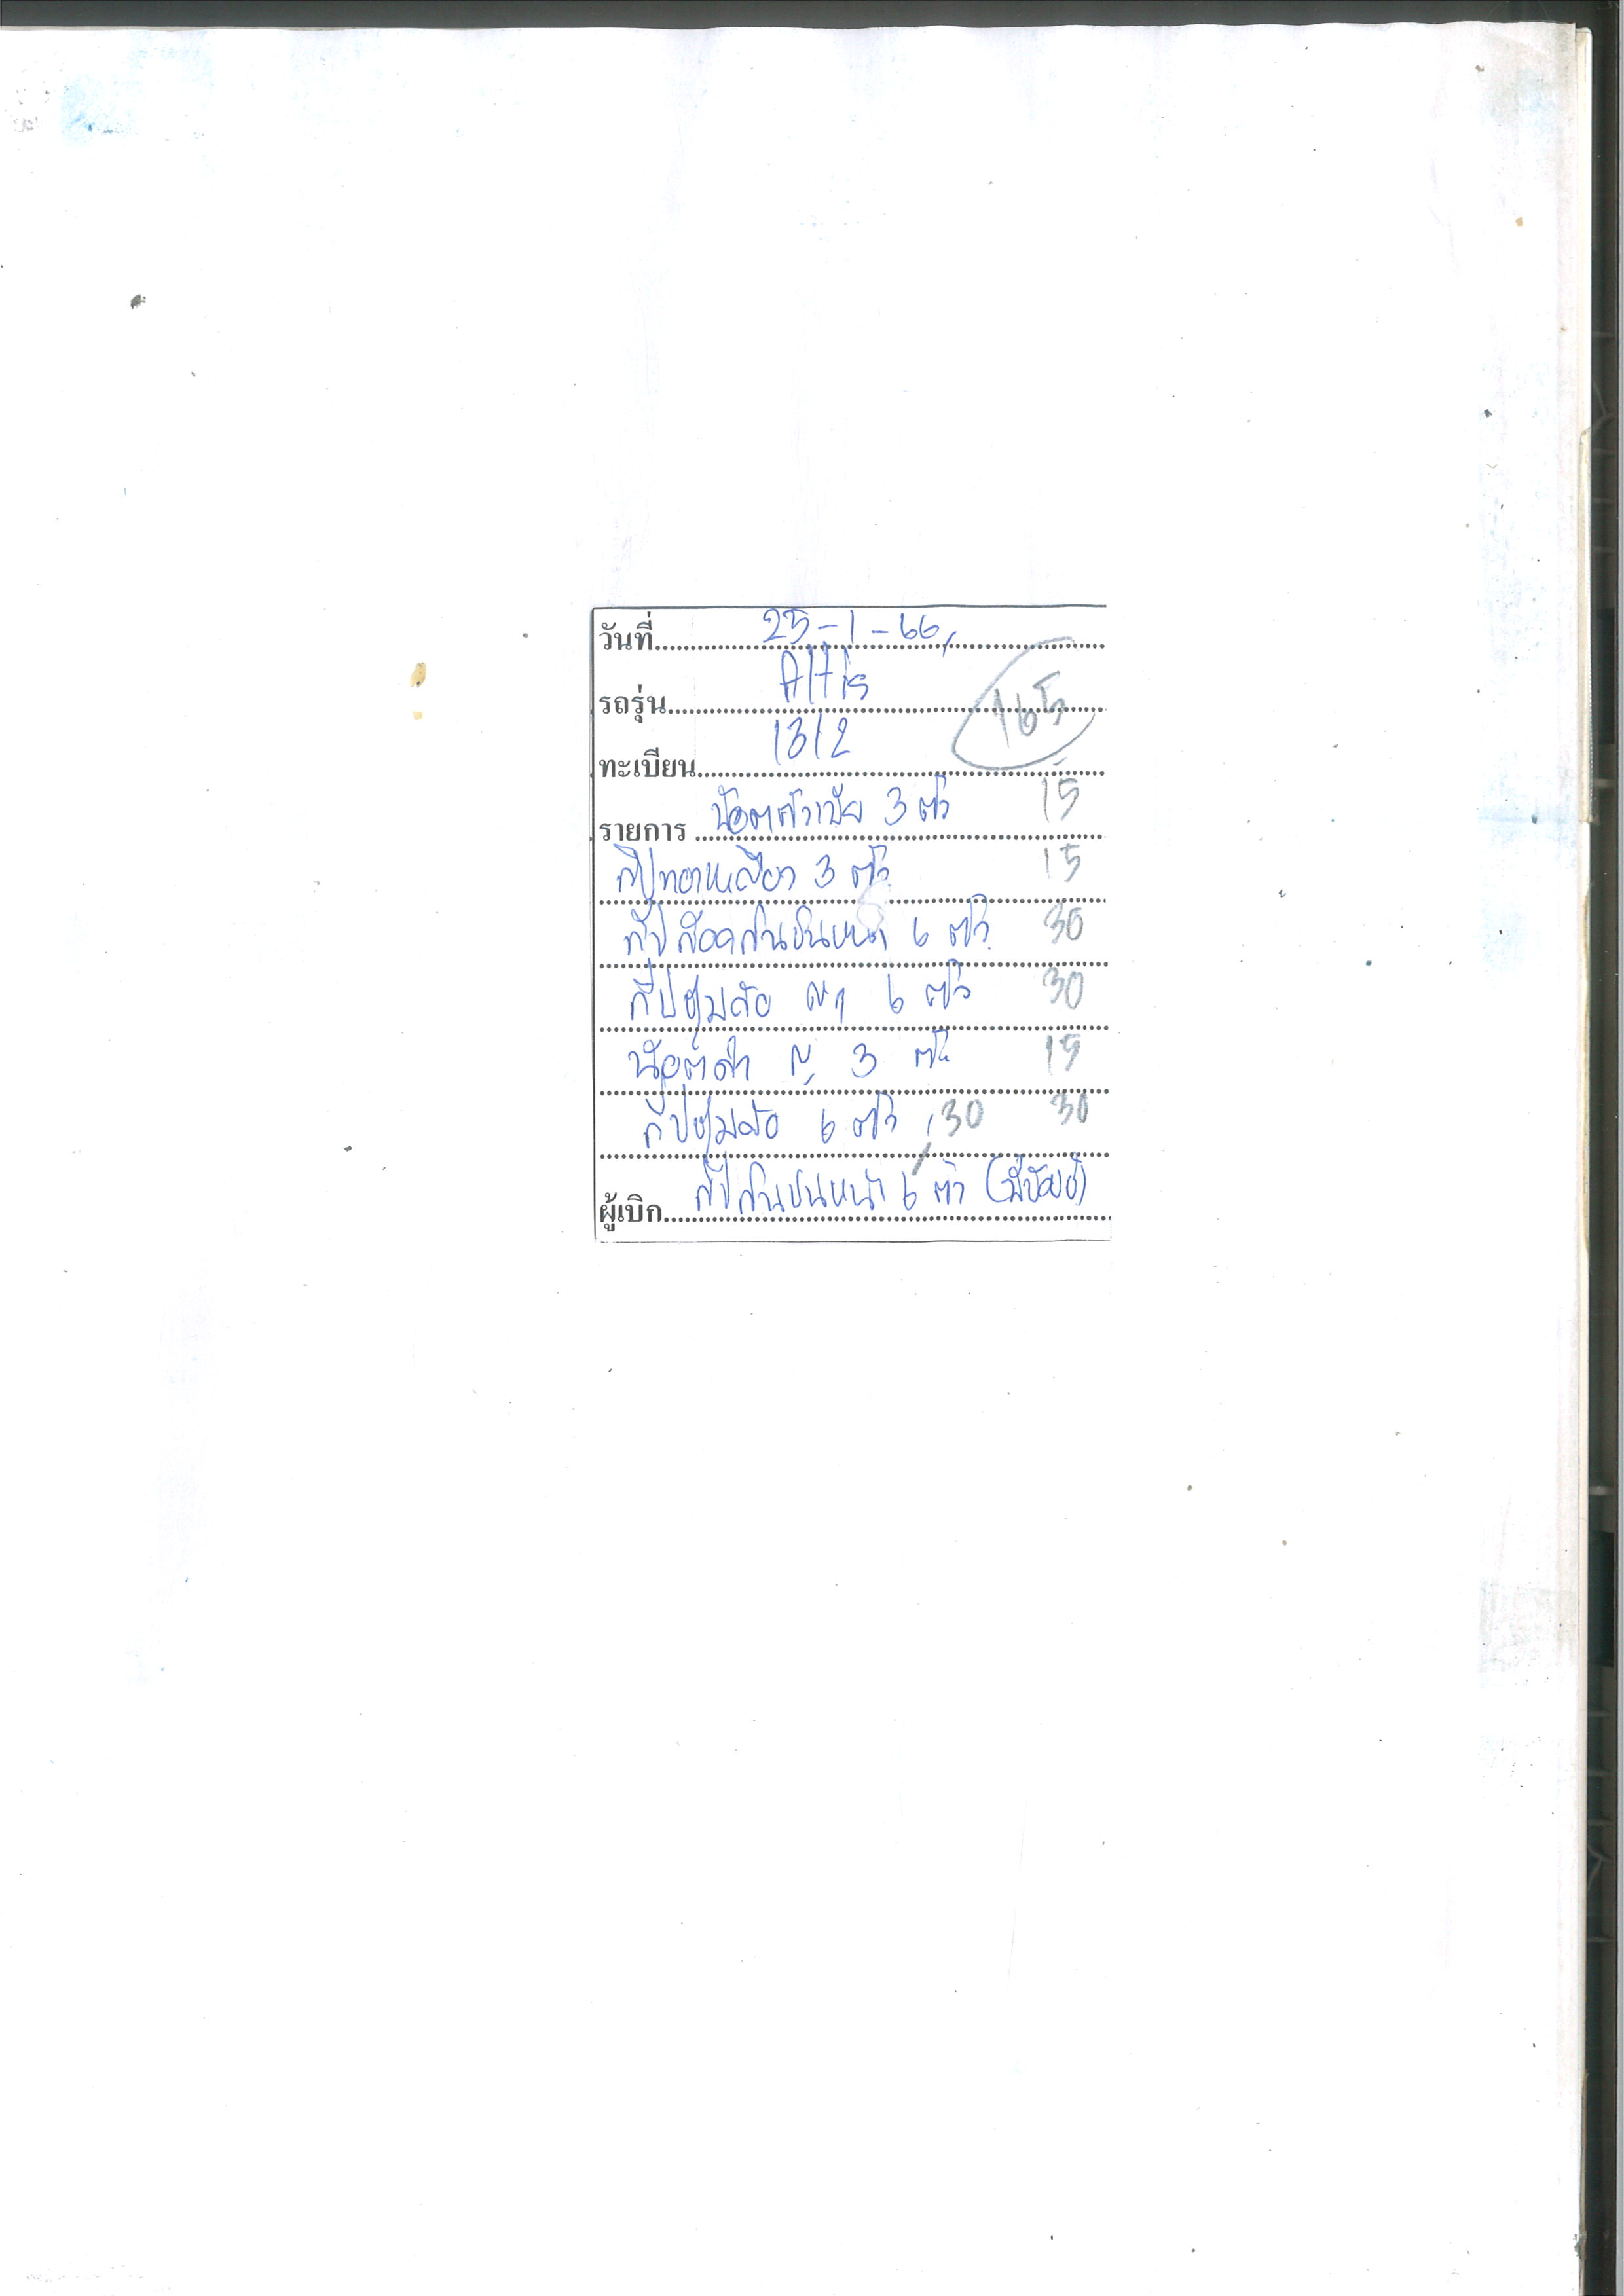 วันที่ 25-1-66
รถรุ่น Altis
165
ทะเบียน 1312
รายการ น๊อตดำเบ้ย 3 ตัว 15
กิ๊ป 3 ตัว 15
กิ๊ปล๊อคกันชนหน้า 6 ตัว 30
กิ๊ปซุ้มล้อ 6 ตัว 30
น๊อตดำ 3 ตัว 15
กิ๊ปซุ้มล้อ 6 ตัว 30 30
ผู้เบิก กิ๊ปกันชนหน้า 6 ตัว